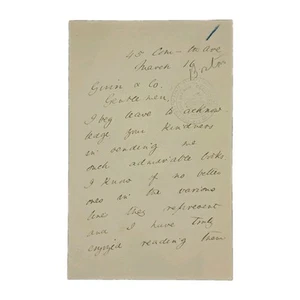 45 Com-th ave
March 16
Boston
Ginn & Co.
Gentlemen,
I beg leave to acknow
ledge your kindness
in sending me
such admirable books
I know of no better
ones in the various
line they represent
and I have truly
enjoyed reading them